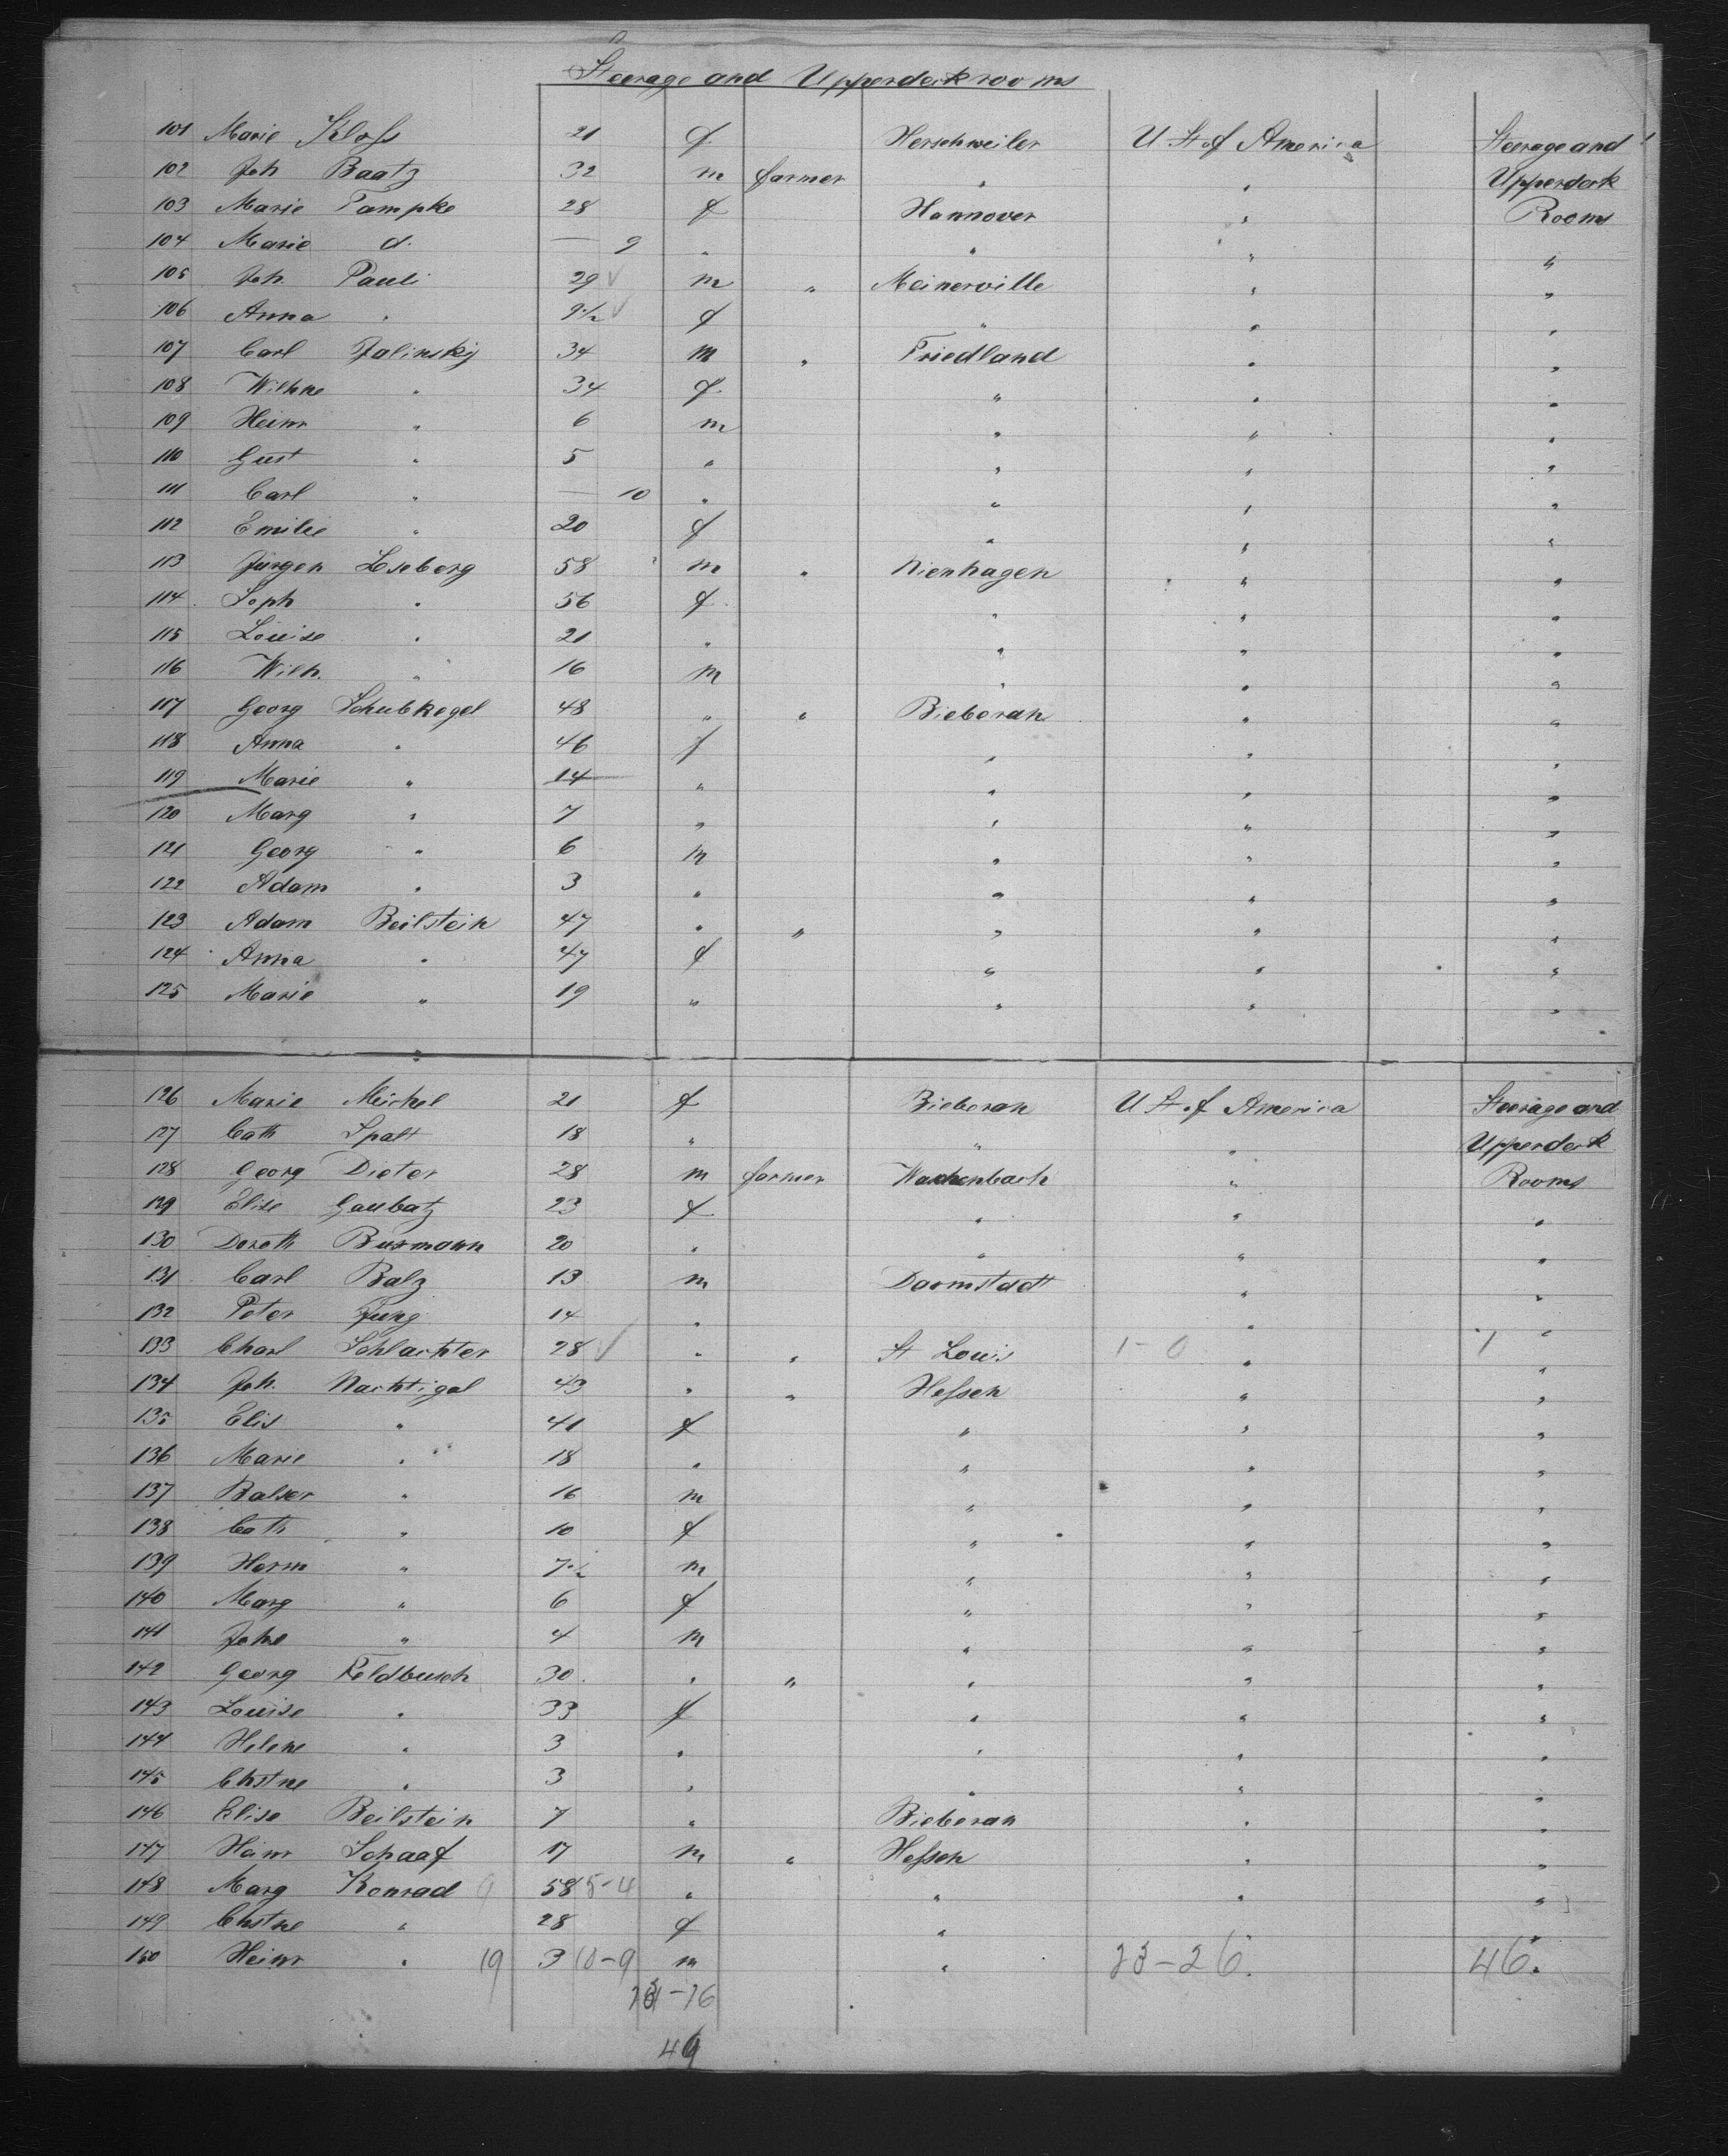 Steerage and Upperdeck rooms
101 Marie Kloss 21 f Herschweiler U. St. of America Steerage and
102 Joh Baatz 32 m farmer " " Upperdeck
103 Marie Pampke 28 f Hannover " Rooms
104 Marie d. — 9 " " " "
105 Joh. Pauli 29 m " Meinerville " "
106 Anna " 9 1/2 f " " "
107 Carl Jalinskij 34 m " Friedland " "
108 Wilhne " 34 f " " "
109 Heinr " 6 m " " "
110 Gust " 5 " " " "
111 Carl " — 10 " " " "
112 Emilie " 20 f " " "
113 Jürgen Eseberg 58 m " Nienhagen " "
114 Soph " 56 f " " "
115 Louise " 21 " " " "
116 Wilh. " 16 m " " "
117 Georg Schubkegel 48 " " Bieberah " "
118 Anna " 46 f " " "
119 Marie " 14 " " " "
120 Marg " 7 " " " "
121 Georg " 6 m " " "
122 Adam " 3 " " " "
123 Adam Beilstein 47 " " " " "
124 Anna " 47 f " " "
125 Marie " 19 " " " "
126 Marie Meichel 21 f Bieberah U St. of America Steerage and
127 Cath Spalt 18 " " " Upperdeck
128 Georg Dieter 28 m farmer Wachenbach " Rooms
129 Elise Gaubatz 23 f " " "
130 Doroth Burmann 20 " " " "
131 Carl Balz 13 m Darmstadt " "
132 Peter Jung 14 " " "
133 Charl Schlachter 28 " " St Louis 1-0 " 1 "
134 Joh. Nachtigal 43 " " Hessen " "
135 Elis " 41 f " " "
136 Marie " 18 " " " "
137 Balser " 16 m " " "
138 Cath " 10 f " " "
139 Herm " 7 1/2 m " " "
140 Marg " 6 f " " "
141 Johe " 4 m " " "
142 Georg Feldbusch 30 " " " " "
143 Louise " 33 f " " "
144 Helene " 3 " " " "
145 Chstne " 3 " " " "
146 Elise Beilstein 7 " Bieberah " "
147 Heinr Schaaf 17 m " Hessen " "
148 Marg Konrad 58 5-4 " " " "
149 Chstne " 28 f " "
150 Heinr " 19 3 10-9 m " 23-26. 46.
49